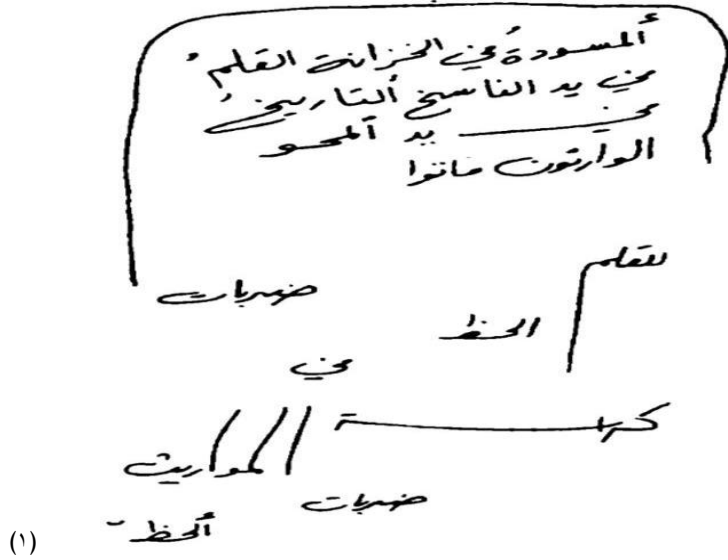 ألمسودةُ في الخزانة القلم
في يد الناسخ ألتاريخُ
في يد ألمحو
الوارثون ماتوا
للقلم
ضربات
الحظ
في
كراسة
المواريث
ضربات
ألحظ
(١)